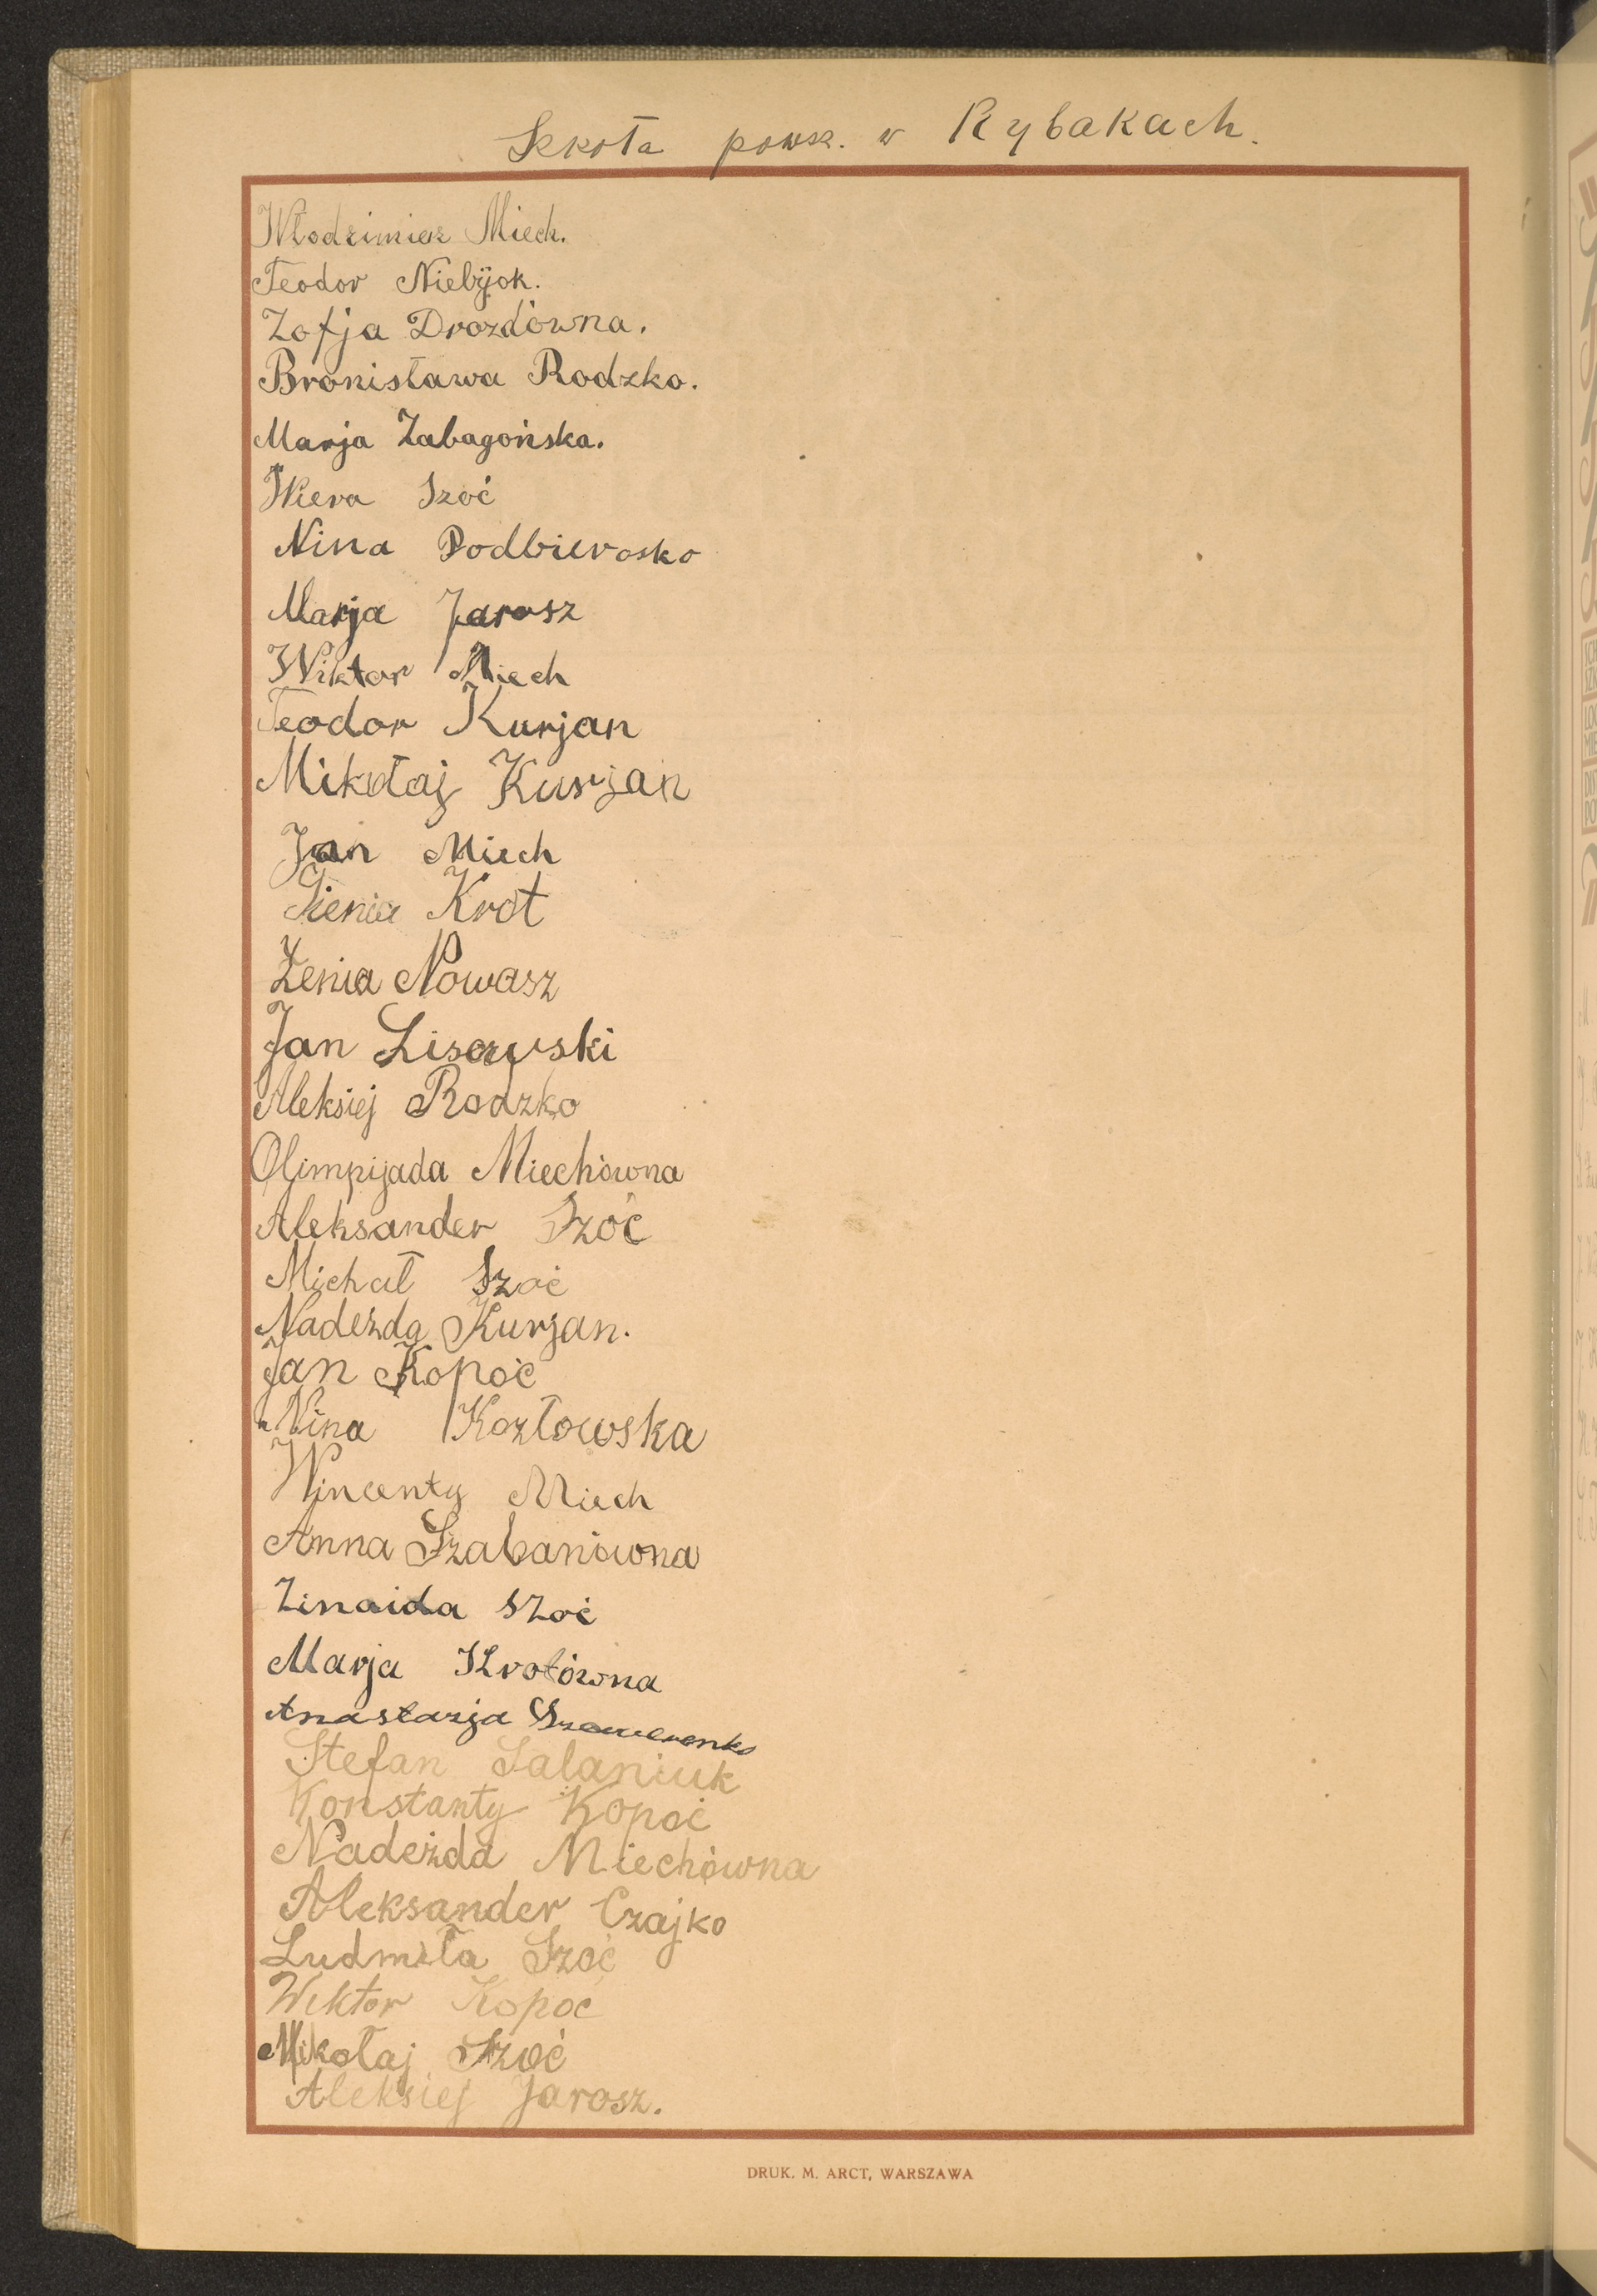 Szkoła powsz. w Rybakach.
Włodzimierz Miech.
Teodor Niebijok.
Zofja Drozdówna.
Bronisława Rodzko.
Marja Zabagońska.
Wiera Szoć
Nina Podbierosko
Marja Jarosz
Wiktor Miech
Teodor Kurjan
Mikołaj Kurjan
Jan Miech
Gienia Krot
Żenia Nowasz
Jan Lisowski
Aleksiej Rodzko
Olimpijada Miechówna
Aleksander Szoć
Michał Szoć
Nadeżda Kurjan.
Jan Kopoć
Nina Kozłowska
Wincenty Miech
Anna Szabanówna
Zinaida Szoć
Marja Krotówna
Anastazja
Stefan Salaniuk
Konstanty Kopoć
Nadeżda Miechówna
Aleksander Czajko
Ludmiła Szoć
Wiktor Kopoc
Mikołaj Szoć
Aleksiej Jarosz.
DRUK. M. ARCT, WARSZAWA